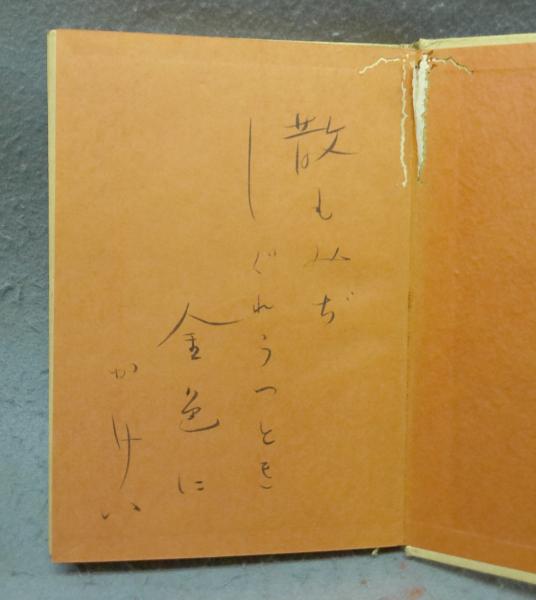 散もみぢ
しぐれうつとき
金色に
かけい